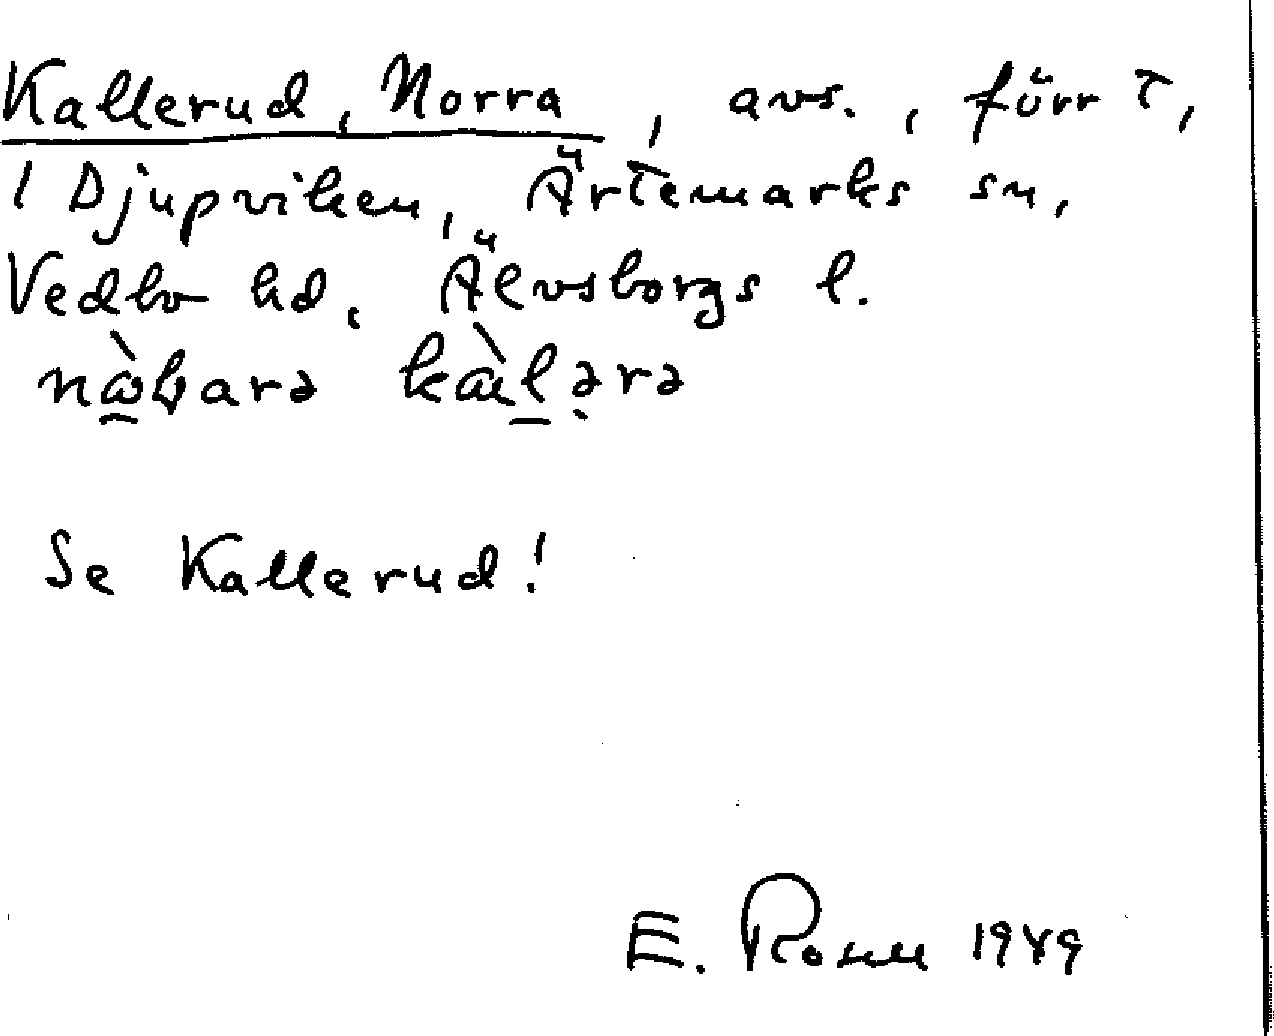 Kallerud, Norra, avs., förr t,
i Djupviken, Ärtemarks sn,
Vedbo hd, Älvsborgs l.
Se Kallerud!
E. Rosell 1949